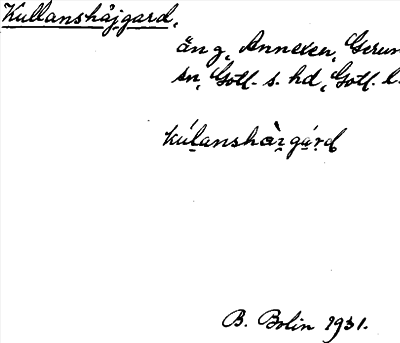 Kullanshäjgard,
äng, Annexen, Gerum
sn, Gotl. s. hd, Gotl. l.
kúlanshàɪgáɾd
B. Bolin 1931.